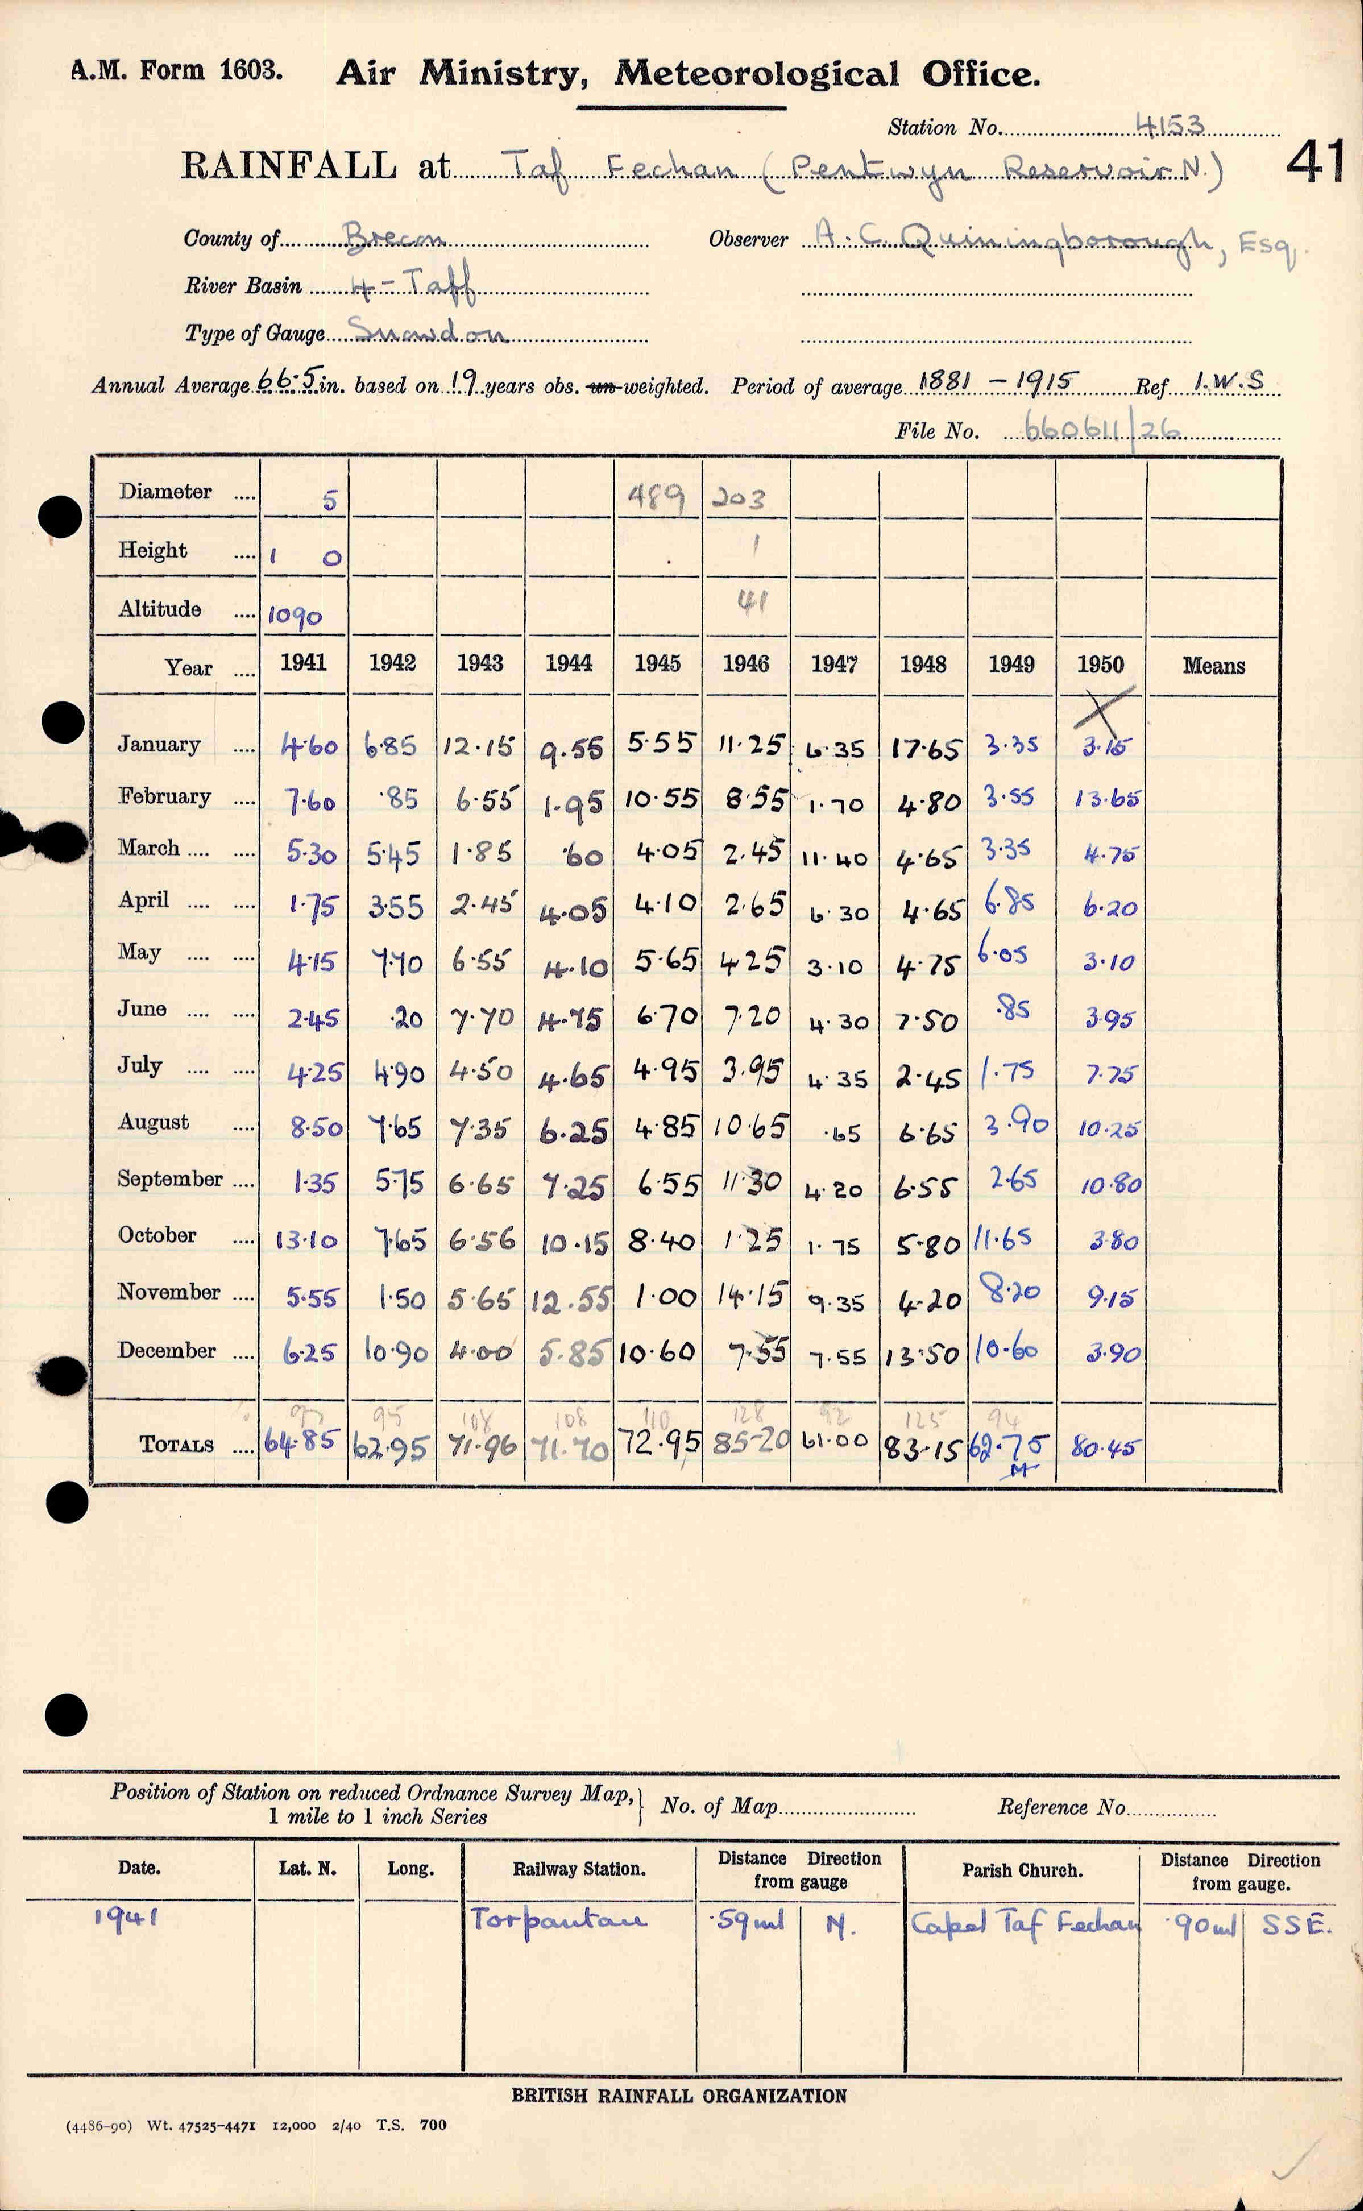 A.M. Form 1603. Air Ministry, Meteorological Office.
Station No. 4153
41
RAINFALL at Taf Fechan (Pentwyn Reservoir N.)
County of Brecon Observer A. C. Quiningborough, Esq.
River Basin 4 - Taff
Type of Gauge Snowdon
Annual Average 66.5 in. based on 19 years obs. un-weighted. Period of average 1881 - 1915 Ref. I.W.S
File No. 660611/26
Diameter .... 5 489 203
Height .... 1 0 1
Altitude .... 1090 41
Year .... 1941 1942 1943 1944 1945 1946 1947 1948 1949 1950 Means
X
January .... 4.60 6.85 12.15 9.55 5.55 11.25 6.35 17.65 3.35 3.15
February .... 7.60 .85 6.55 1.95 10.55 8.55 1.70 4.80 3.55 13.65
March .... .... 5.30 5.45 1.85 .60 4.05 2.45 11.40 4.65 3.35 4.75
April .... .... 1.75 3.55 2.45 4.05 4.10 2.65 6.30 4.65 6.85 6.20
May .... .... 4.15 7.70 6.55 4.10 5.65 4.25 3.10 4.75 6.05 3.10
June .... .... 2.45 .20 7.70 4.75 6.70 7.20 4.30 7.50 .85 3.95
July .... .... 4.25 4.90 4.50 4.65 4.95 3.95 4.35 2.45 1.75 7.75
August .... 8.50 7.65 7.35 6.25 4.85 10.65 .65 6.65 3.90 10.25
September .... 1.35 5.75 6.65 7.25 6.55 11.30 4.20 6.55 2.65 10.80
October .... 13.10 7.65 6.56 10.15 8.40 1.25 1.75 5.80 11.65 3.80
November .... 5.55 1.50 5.65 12.55 1.00 14.15 9.35 4.20 8.20 9.15
December .... 6.25 10.90 4.00 5.85 10.60 7.55 7.55 13.50 10.60 3.90
% 97 95 108 108 110 128 92 125 94
TOTALS .... 64.85 62.95 71.96 71.70 72.95 85.20 61.00 83.15 62.75 80.45
Position of Station on reduced Ordnance Survey Map, 1 mile to 1 inch Series } No. of Map Reference No.
Date. Lat. N. Long. Railway Station. Distance Direction from gauge Parish Church. Distance Direction from gauge.
1941 Torpantau .59 ml N. Capel Taf Fechan .90 ml SSE.
BRITISH RAINFALL ORGANIZATION
(4486-90) Wt. 47525-4471 12,000 2/40 T.S. 700